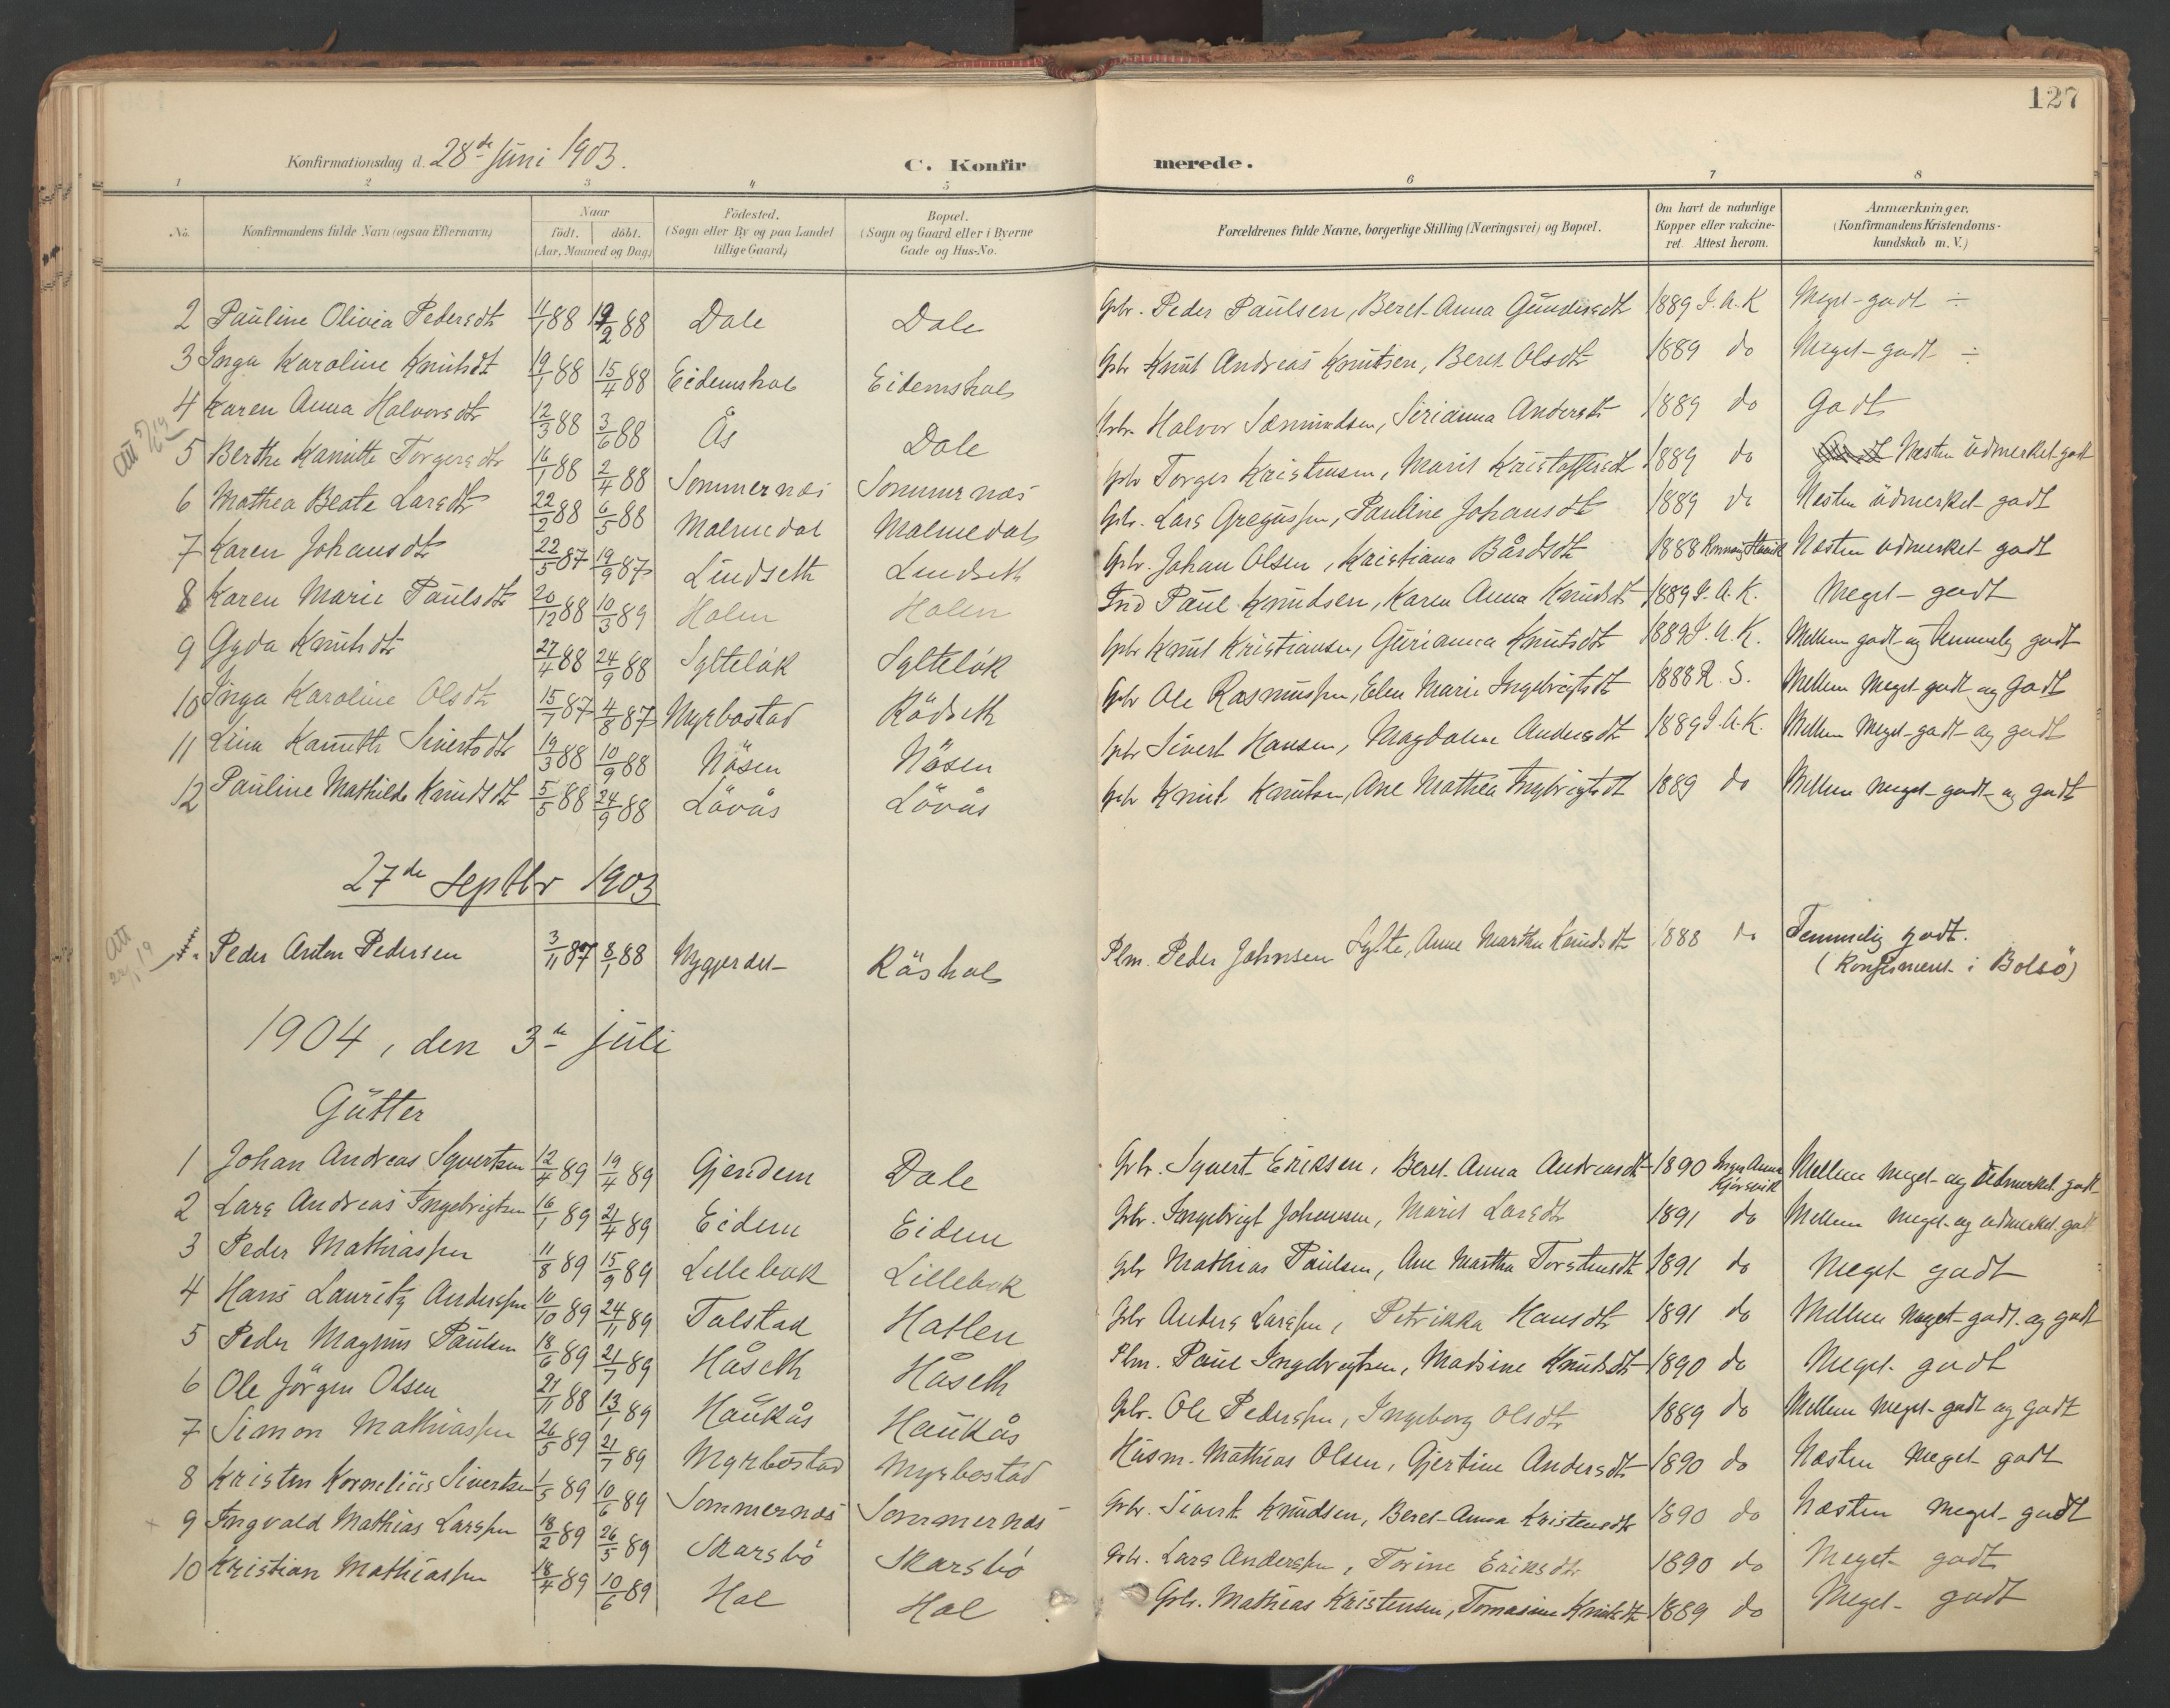 127
Konfirmationsdag d. 28de Juni 1903.
C. Konfirmerede.
1 2 3 4 5 6 7 8
No. Konfirmandens fulde Navn (ogsaa Efternavn) Naar født. døbt. (Aar, Maaned og Dag) Fødested. (Sogn eller By og paa Landet tillige Gaard) Bopæl. (Sogn og Gaard eller i Byerne Gade og Hus-No. Forældrenes fulde Navne, borgerlige Stilling (Næringsvei) og Bopæl. Om havt de naturlige Kopper eller vakcineret. Attest herom. Anmærkninger. (Konfirmandens Kristendomskundskab m. V.)
2 Pauline Olivia Pedersdtr 4/1 88 19/2 88 Dale Dale Gbr. Peder Paulsen, Beret Anna Gundersdtr 1889 I. A. K Meget godt ÷
3 Inga Karoline Knutsdtr 19/1 88 15/4 88 Eidemshal Eidemshal Gbr Knut Andreas Knutsen, Beret Olsdtr 1889 do Meget godt ÷
4 Karen Anna Halvorsdtr 12/3 88 3/6 88 Ås Dale Gbr. Halvor Sæmundsen, Sirianna Andersdtr 1889 do Godt
Att 5/6 19
5 Berthe Kanutte Torgersdtr 16/1 88 2/4 88 Sommernæs Sommernæs Gbr Torger Kristensen, Marit Kristoffersdt 1889 do Næsten udmerket godt
6 Mathea Beate Larsdtr 22/2 88 6/5 88 Malmedal Malmedal Gbr. Lars Gregussen, Pauline Johansdt 1889 do Næsten udmerket godt
7 Karen Johansdtr 22/5 87 19/9 87 Lindseth Lindseth Gbr. Johan Olsen, Kristiana Bårdsdtr 1888 Næsten udmerket godt
8 Karen Marie Paulsdtr 20/12 88 10/3 89 Holen Holen Ind Paul Knudsen, Karen Anna Knudsdtr 1889 I. A. K. Meget godt
9 Gyda Knutsdtr 27/4 88 24/9 88 Sylteløk Sylteløk Gbr Knut Kristiansen, Gurianna Knutsdtr 1889 I. A. K. Mellem godt og temmelig godt
10 Inga Karoline Olsdtr 15/7 87 4/8 87 Myrbostad Rödseth Gbr Ole Rasmussen, Elen Marie Ingebrigtsdt 1888 R. S. Mellem meget godt og godt
11 Lina Kanutte Sivertsdtr 19/3 88 10/9 88 Näsen Näsen Gbr Sivert Hansen, Magdalene Andersdtr 1889 I. A. K. Mellem meget godt og godt
12 Pauline Mathilde Knudsdt 5/5 88 24/9 88 Lövås Lövås Gbr Knut Knutsen, Ane Mathea Ingebrigtsdt 1889 do Mellem meget godt og godt
27de Septbr 1903
Att
1. Peder Anton Pedersen 3/11 87 8/1 88 Nygjerdet Råshal Plm. Peder Johnsen Sylte, Anne Martha Knudsdtr 1888 do Temmelig godt.
(Konfirmeret i Bolsö)
1904, den 3de juli
Gutter
1 Johan Andreas Syvertsen 12/4 89 19/4 89 Gjendem Dale Gbr. Syvert Eriksen, Beret Anna Andreasdt 1890 Inger Anna Kjørsvik Mellem meget og udmerket godt
2 Lars Andreas Ingebrigtsen 16/1 89 21/4 89 Eidem Eidem Gbr. Ingebrigt Johansen, Marit Larsdtr 1891 do Mellem meget og udmerket godt
3 Peder Mathiassen 11/8 89 15/9 89 Lillebak Lillebak Gbr Mathias Paulsen, Ane Martha Torstensdt 1891 do Meget godt
4 Hans Lauritz Anderssen 10/10 89 24/11 89 Talstad Hatlen Gbr Anders Larssen, Petrikka Hansdtr 1891 do Mellem meget godt og godt
5 Peder Magnus Paulsen 18/6 89 21/7 89 Håseth Håseth Plm. Paul Ingebrigtsen, Madsine Knudsdt 1890 do Meget godt
6 Ole Jörgen Olsen 21/11 88 13/1 89 Haukås Haukås Gbr. Ole Pederssen, Ingeborg Olsdtr 1889 do Mellem meget godt og godt
7 Simon Mathiassen 26/5 89 21/7 89 Myrbostad Myrbostad Husm. Mathias Olsen, Gjertine Andersdtr 1890 do Næsten meget godt
8 Kristen Kornelius Sivertsen 1/5 89 10/6 89 Sommernæs Sommernæs Gbr. Sivert Knudsen, Beret Anna Kristensdtr 1890 do Næsten meget godt
9 Ingvald Mathias Larssen 18/2 89 26/5 89 Skarsbö Skarsbö Gbr. Lars Anderssen, Torine Eriksdtr 1890 do Meget godt
10 Kristian Mathiassen 18/4 89 10/6 89 Hol Hol Gbr. Mathias Kristensen, Tomasine Knutsdtr 1889 do Meget godt